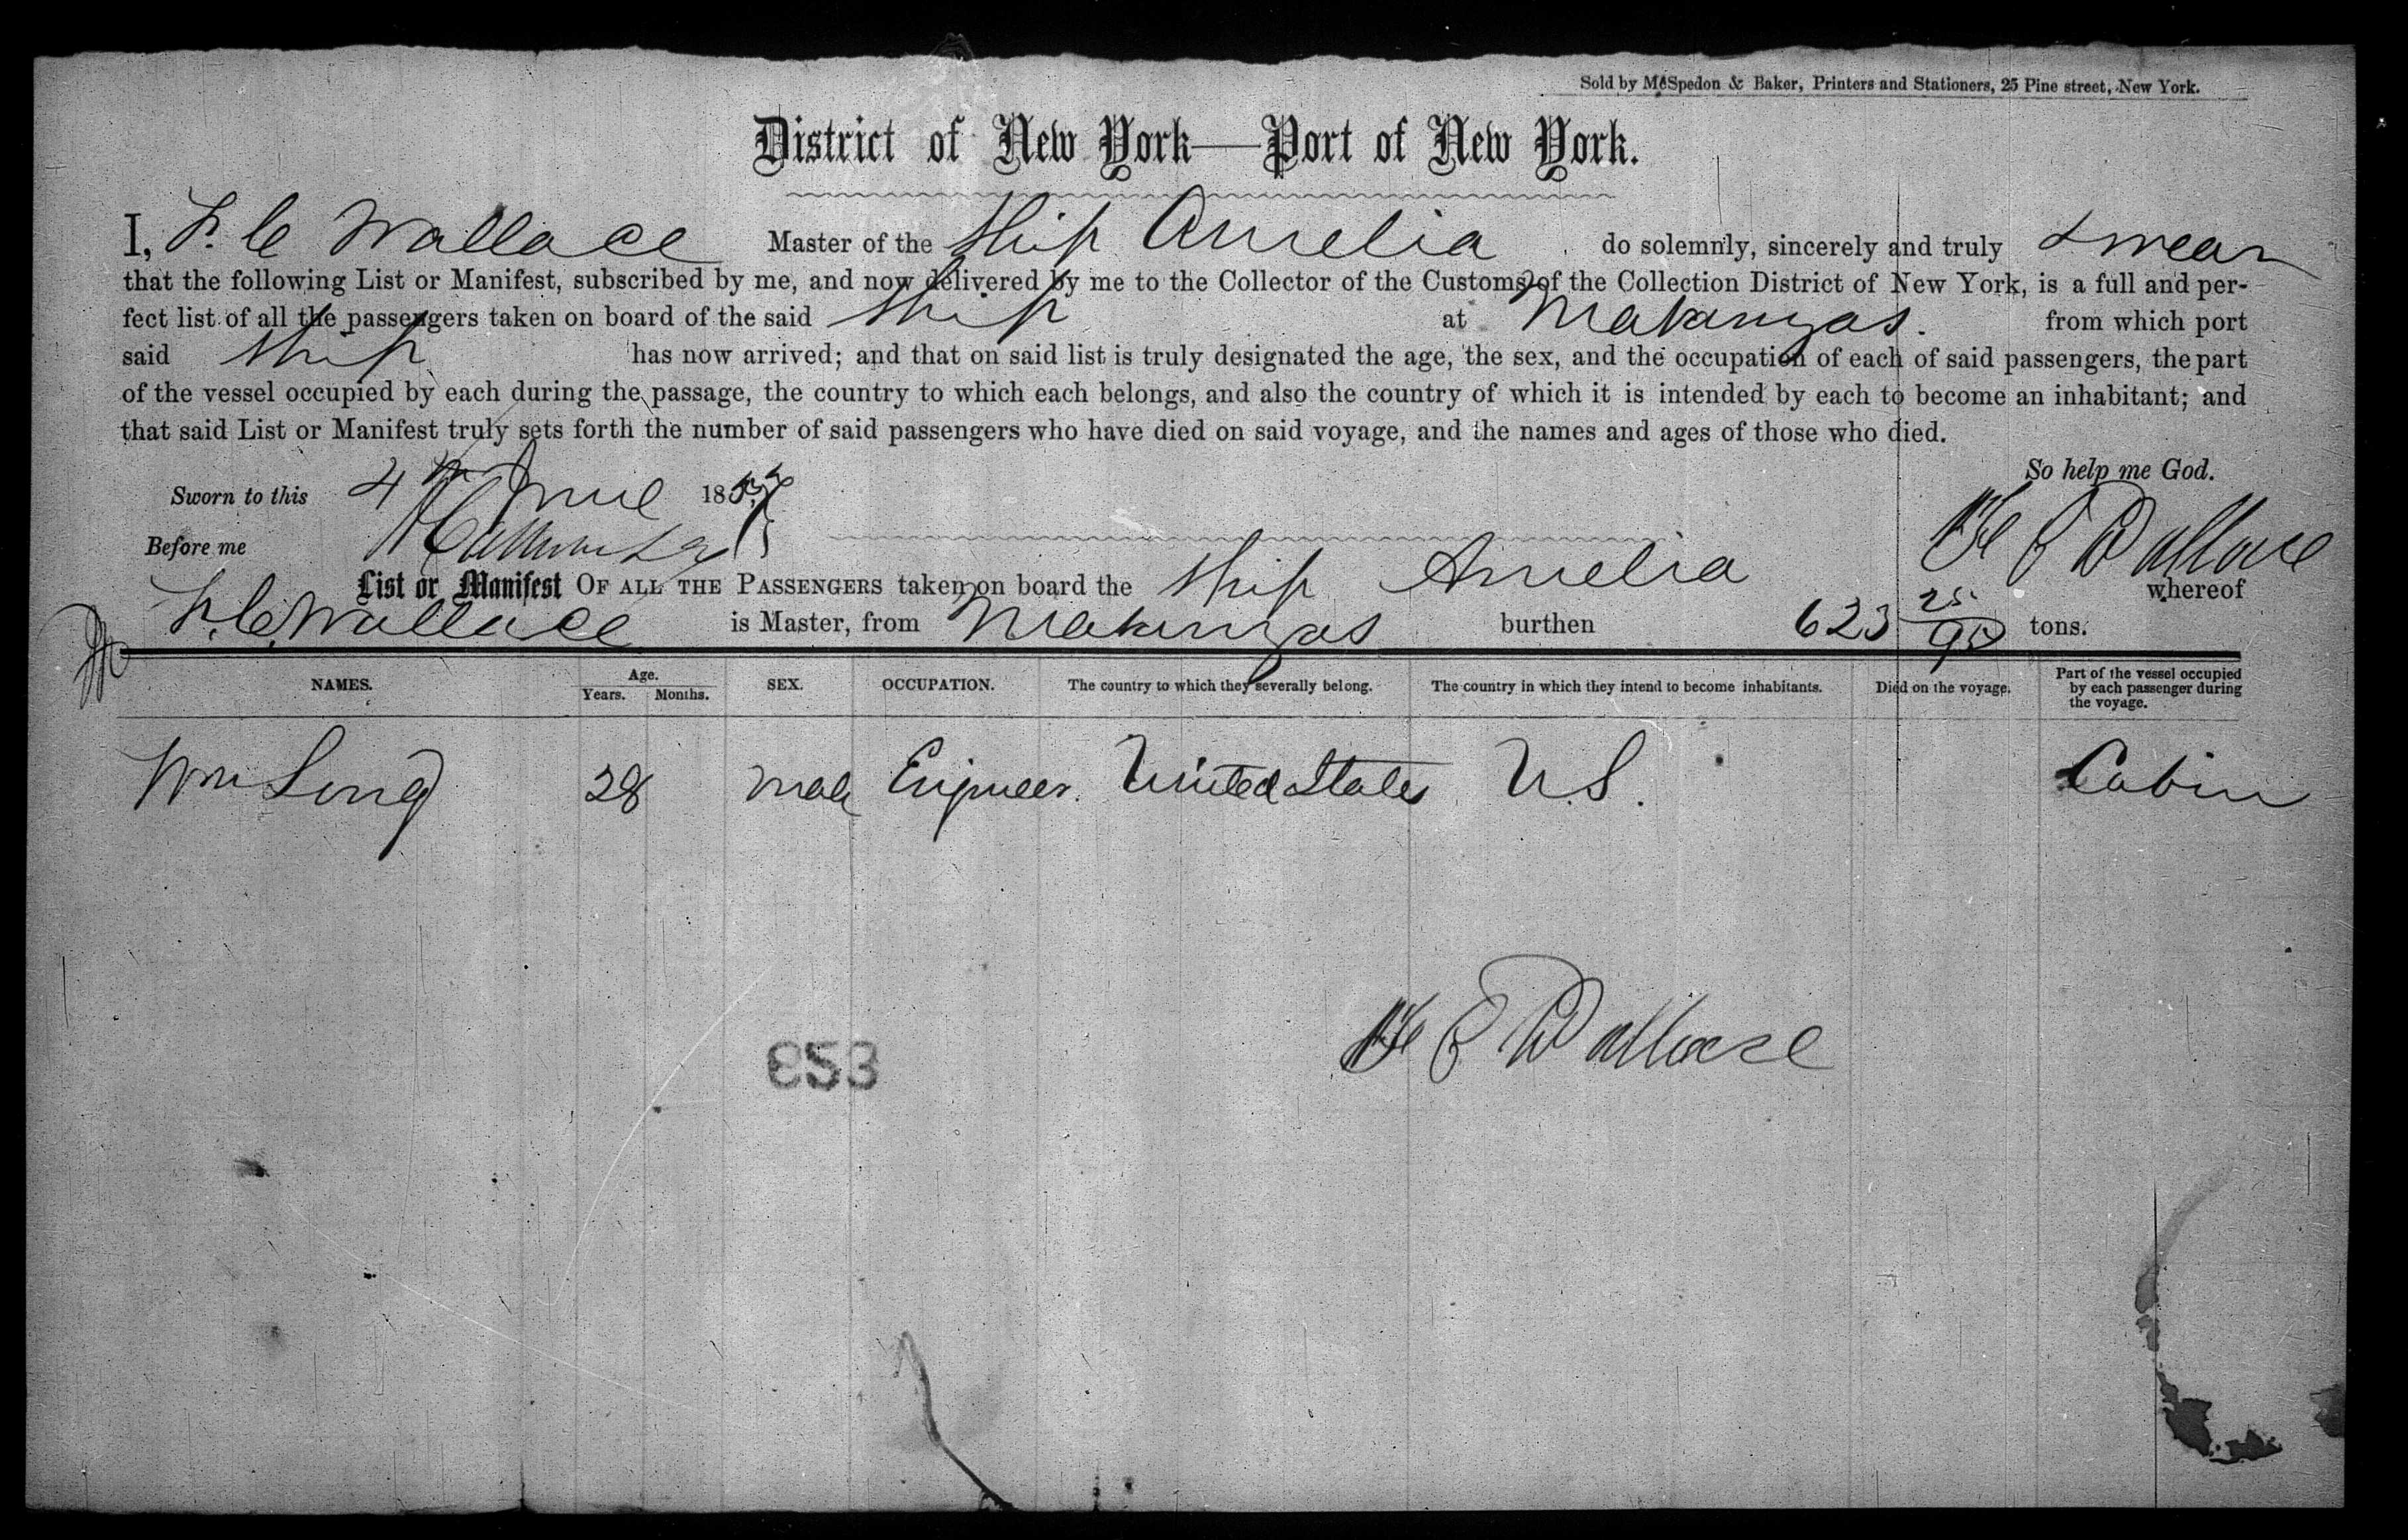 Sold by McSpedon & Baker, Printers and Stationers, 25 Pine street, New York.
District of New York—Port of New York.
I, F. C Wallace Master of the Ship Amelia do solemnly, sincerely and truly swear
that the following List or Manifest, subscribed by me, and now delivered by me to the Collector of the Customs of the Collection District of New York, is a full and per-
fect list of all the passengers taken on board of the said Ship at Matanzas. from which port
said Ship has now arrived; and that on said list is truly designated the age, the sex, and the occupation of each of said passengers, the part
of the vessel occupied by each during the passage, the country to which each belongs, and also the country of which it is intended by each to become an inhabitant; and
that said List or Manifest truly sets forth the number of said passengers who have died on said voyage, and the names and ages of those who died.
So help me God.
Sworn to this 4th June 185
Before me
Wallace
List or Manifest OF ALL THE PASSENGERS taken on board the Ship Amelia whereof
F. C. Wallace is Master, from Matanzas burthen 623 25/95 tons.
NAMES. Age. Years. Months. SEX. OCCUPATION. The country to which they severally belong. The country in which they intend to become inhabitants. Died on the voyage. Part of the vessel occupied by each passenger during the voyage.
Wm Long 28 Male Engineer. United States U.S. Cabin
Wallace
853